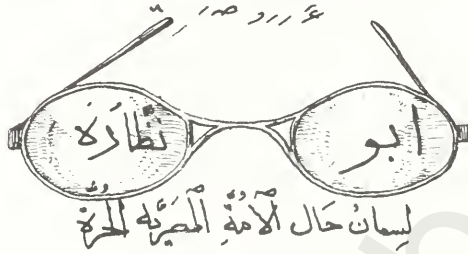 ابو نظارة
لِسَانُ حَال الْأُمَّةِ الْمَصْرِيَّه الْحُرَّة